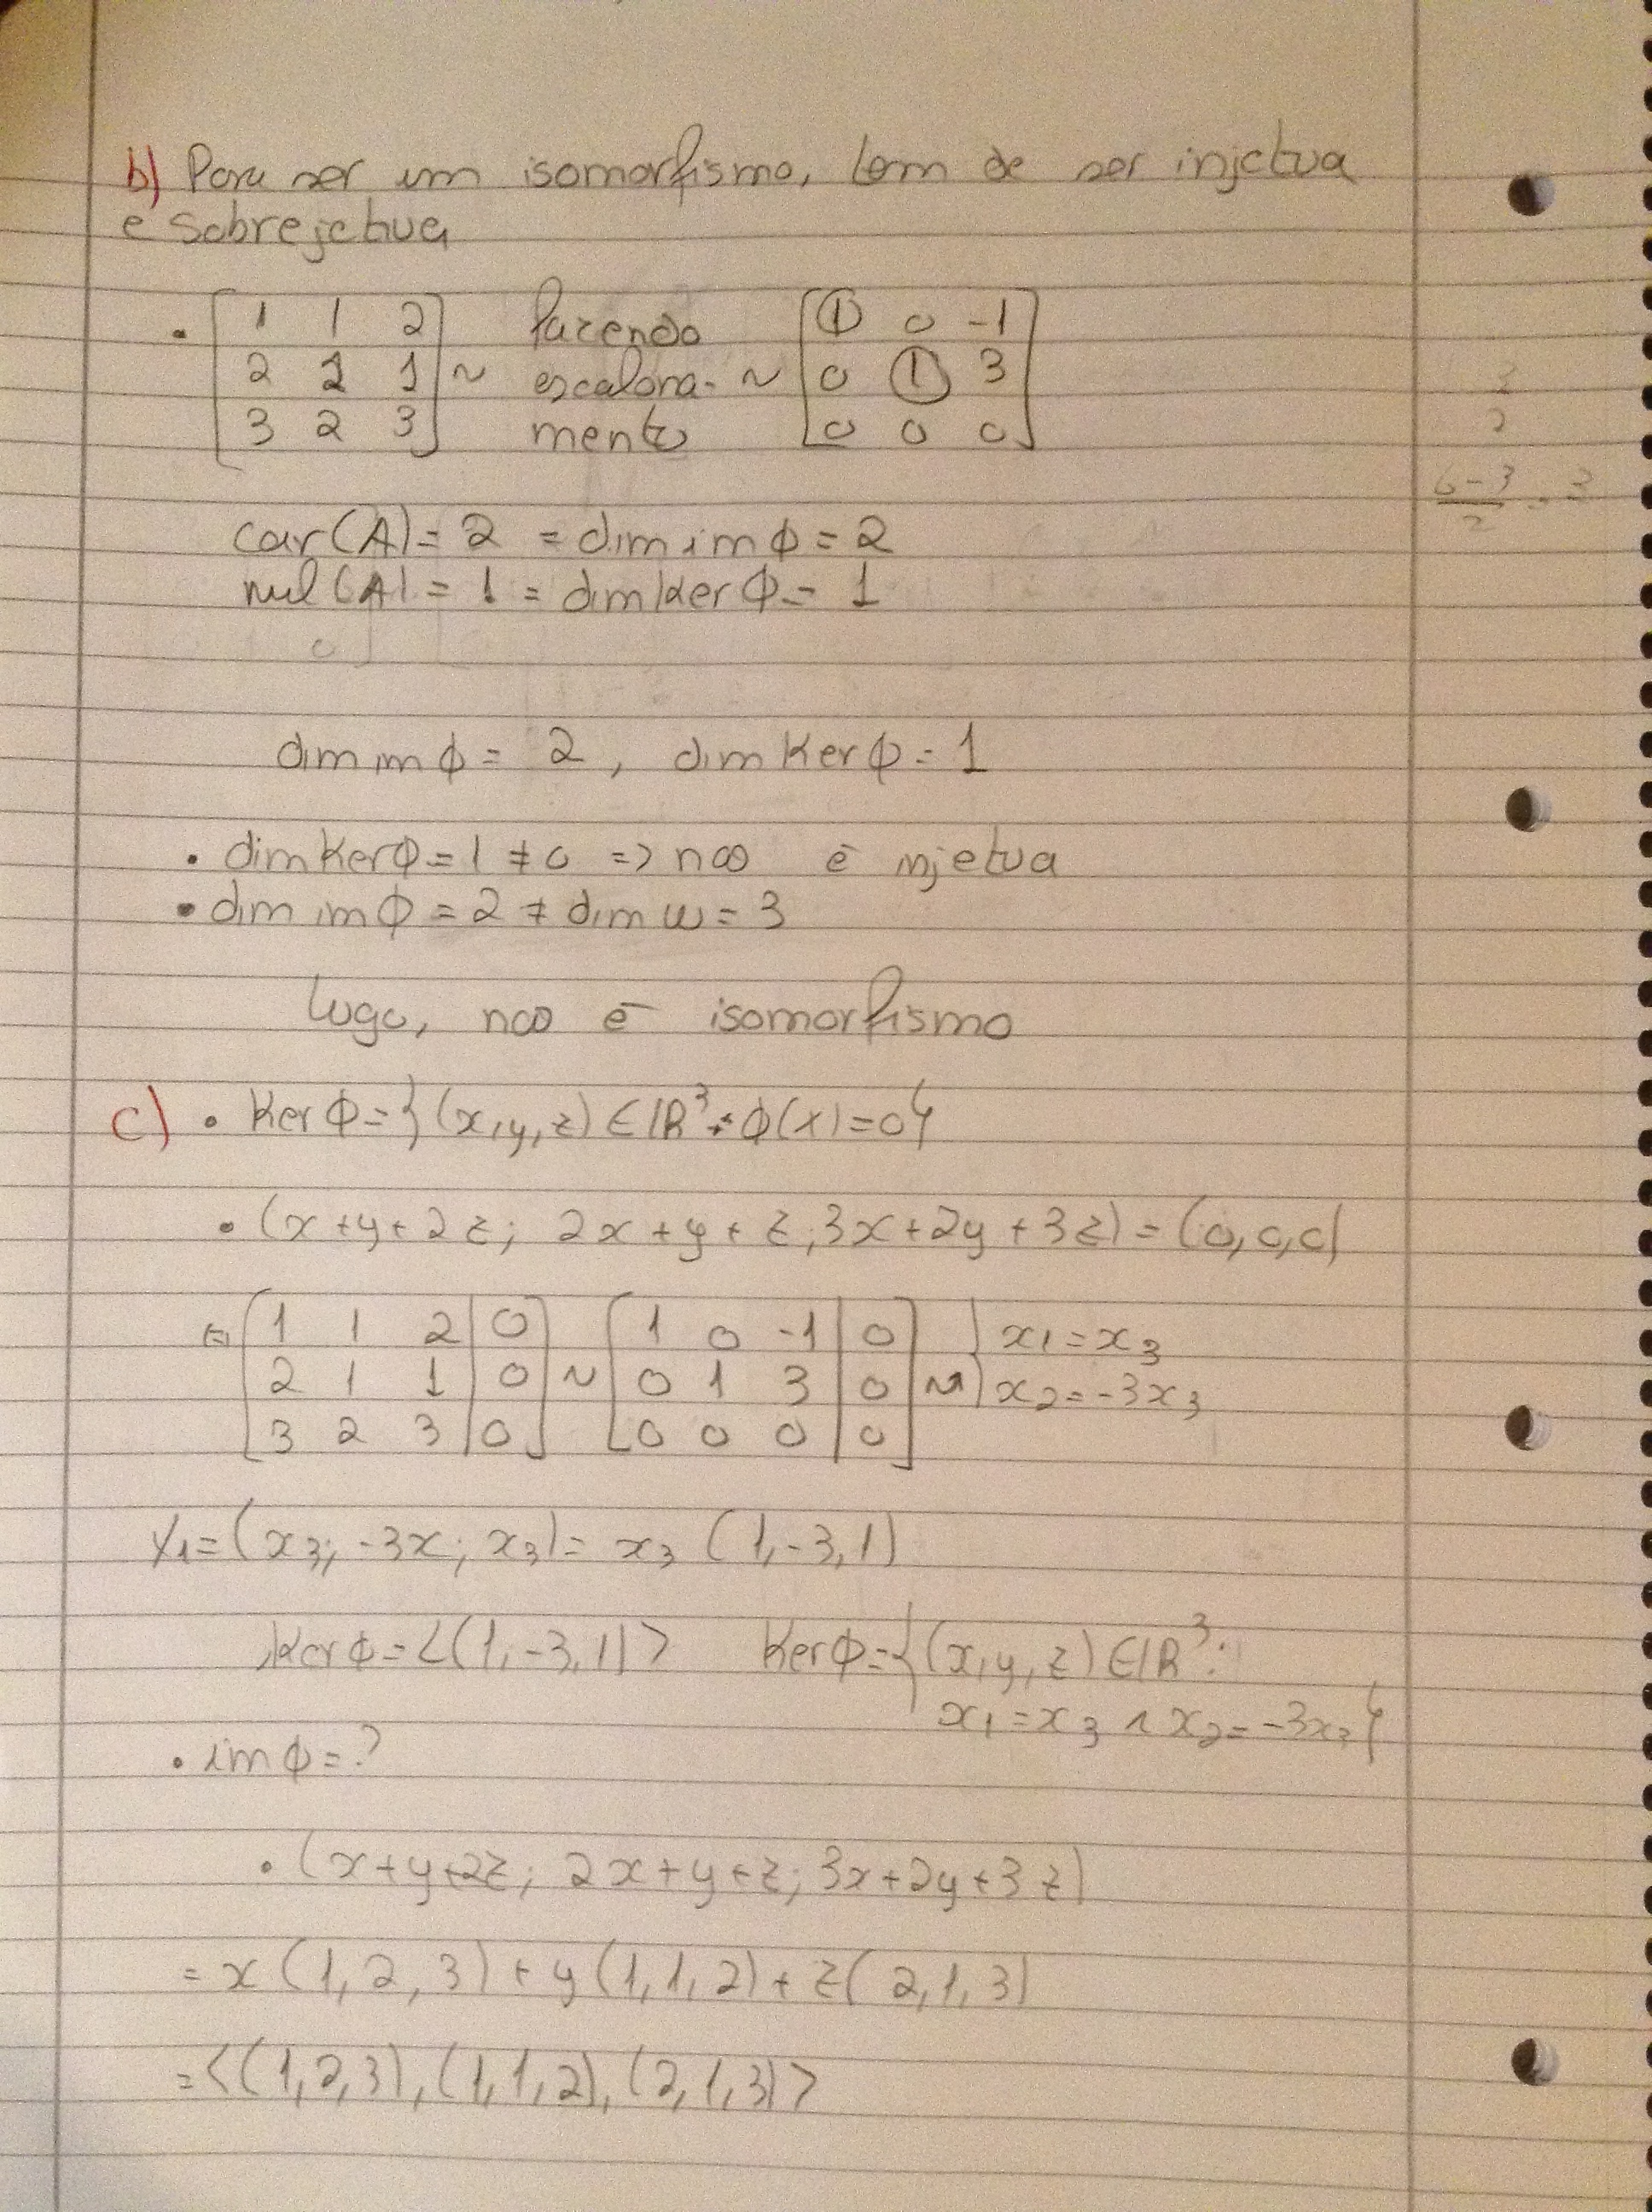 b) Para ser um isomorfismo, tem de ser injetiva
e sobrejetiva
• [1 1 2; 2 1 1; 3 2 3] ~ fazendo escalonamento ~ [1 0 -1; 0 1 3; 0 0 0]
car(A) = 2 = dim im ϕ = 2
nul(A) = 1 = dim Ker ϕ = 1
dim im ϕ = 2, dim Ker ϕ = 1
• dim Ker ϕ = 1 ≠ 0 => não é injetiva
• dim im ϕ = 2 ≠ dim W = 3
Logo, não é isomorfismo
c) • Ker ϕ = {(x, y, z) ∈ IR³ : ϕ(x) = 0}
• (x + y + 2z; 2x + y + z; 3x + 2y + 3z) = (0, 0, 0)
⇔ [1 1 2 | 0; 2 1 1 | 0; 3 2 3 | 0] ~ [1 0 -1 | 0; 0 1 3 | 0; 0 0 0 | 0] ~ { x₁ = x₃
x₂ = -3x₃
(x₃; -3x; x₃) = x₃ (1, -3, 1)
Ker ϕ = <(1, -3, 1)> Ker ϕ = {(x, y, z) ∈ IR³:
x₁ = x₃ ∧ x₂ = -3x₃}
• im ϕ = ?
• (x + y + 2z; 2x + y + z; 3x + 2y + 3z)
= x (1, 2, 3) + y (1, 1, 2) + z (2, 1, 3)
= <(1, 2, 3), (1, 1, 2), (2, 1, 3)>